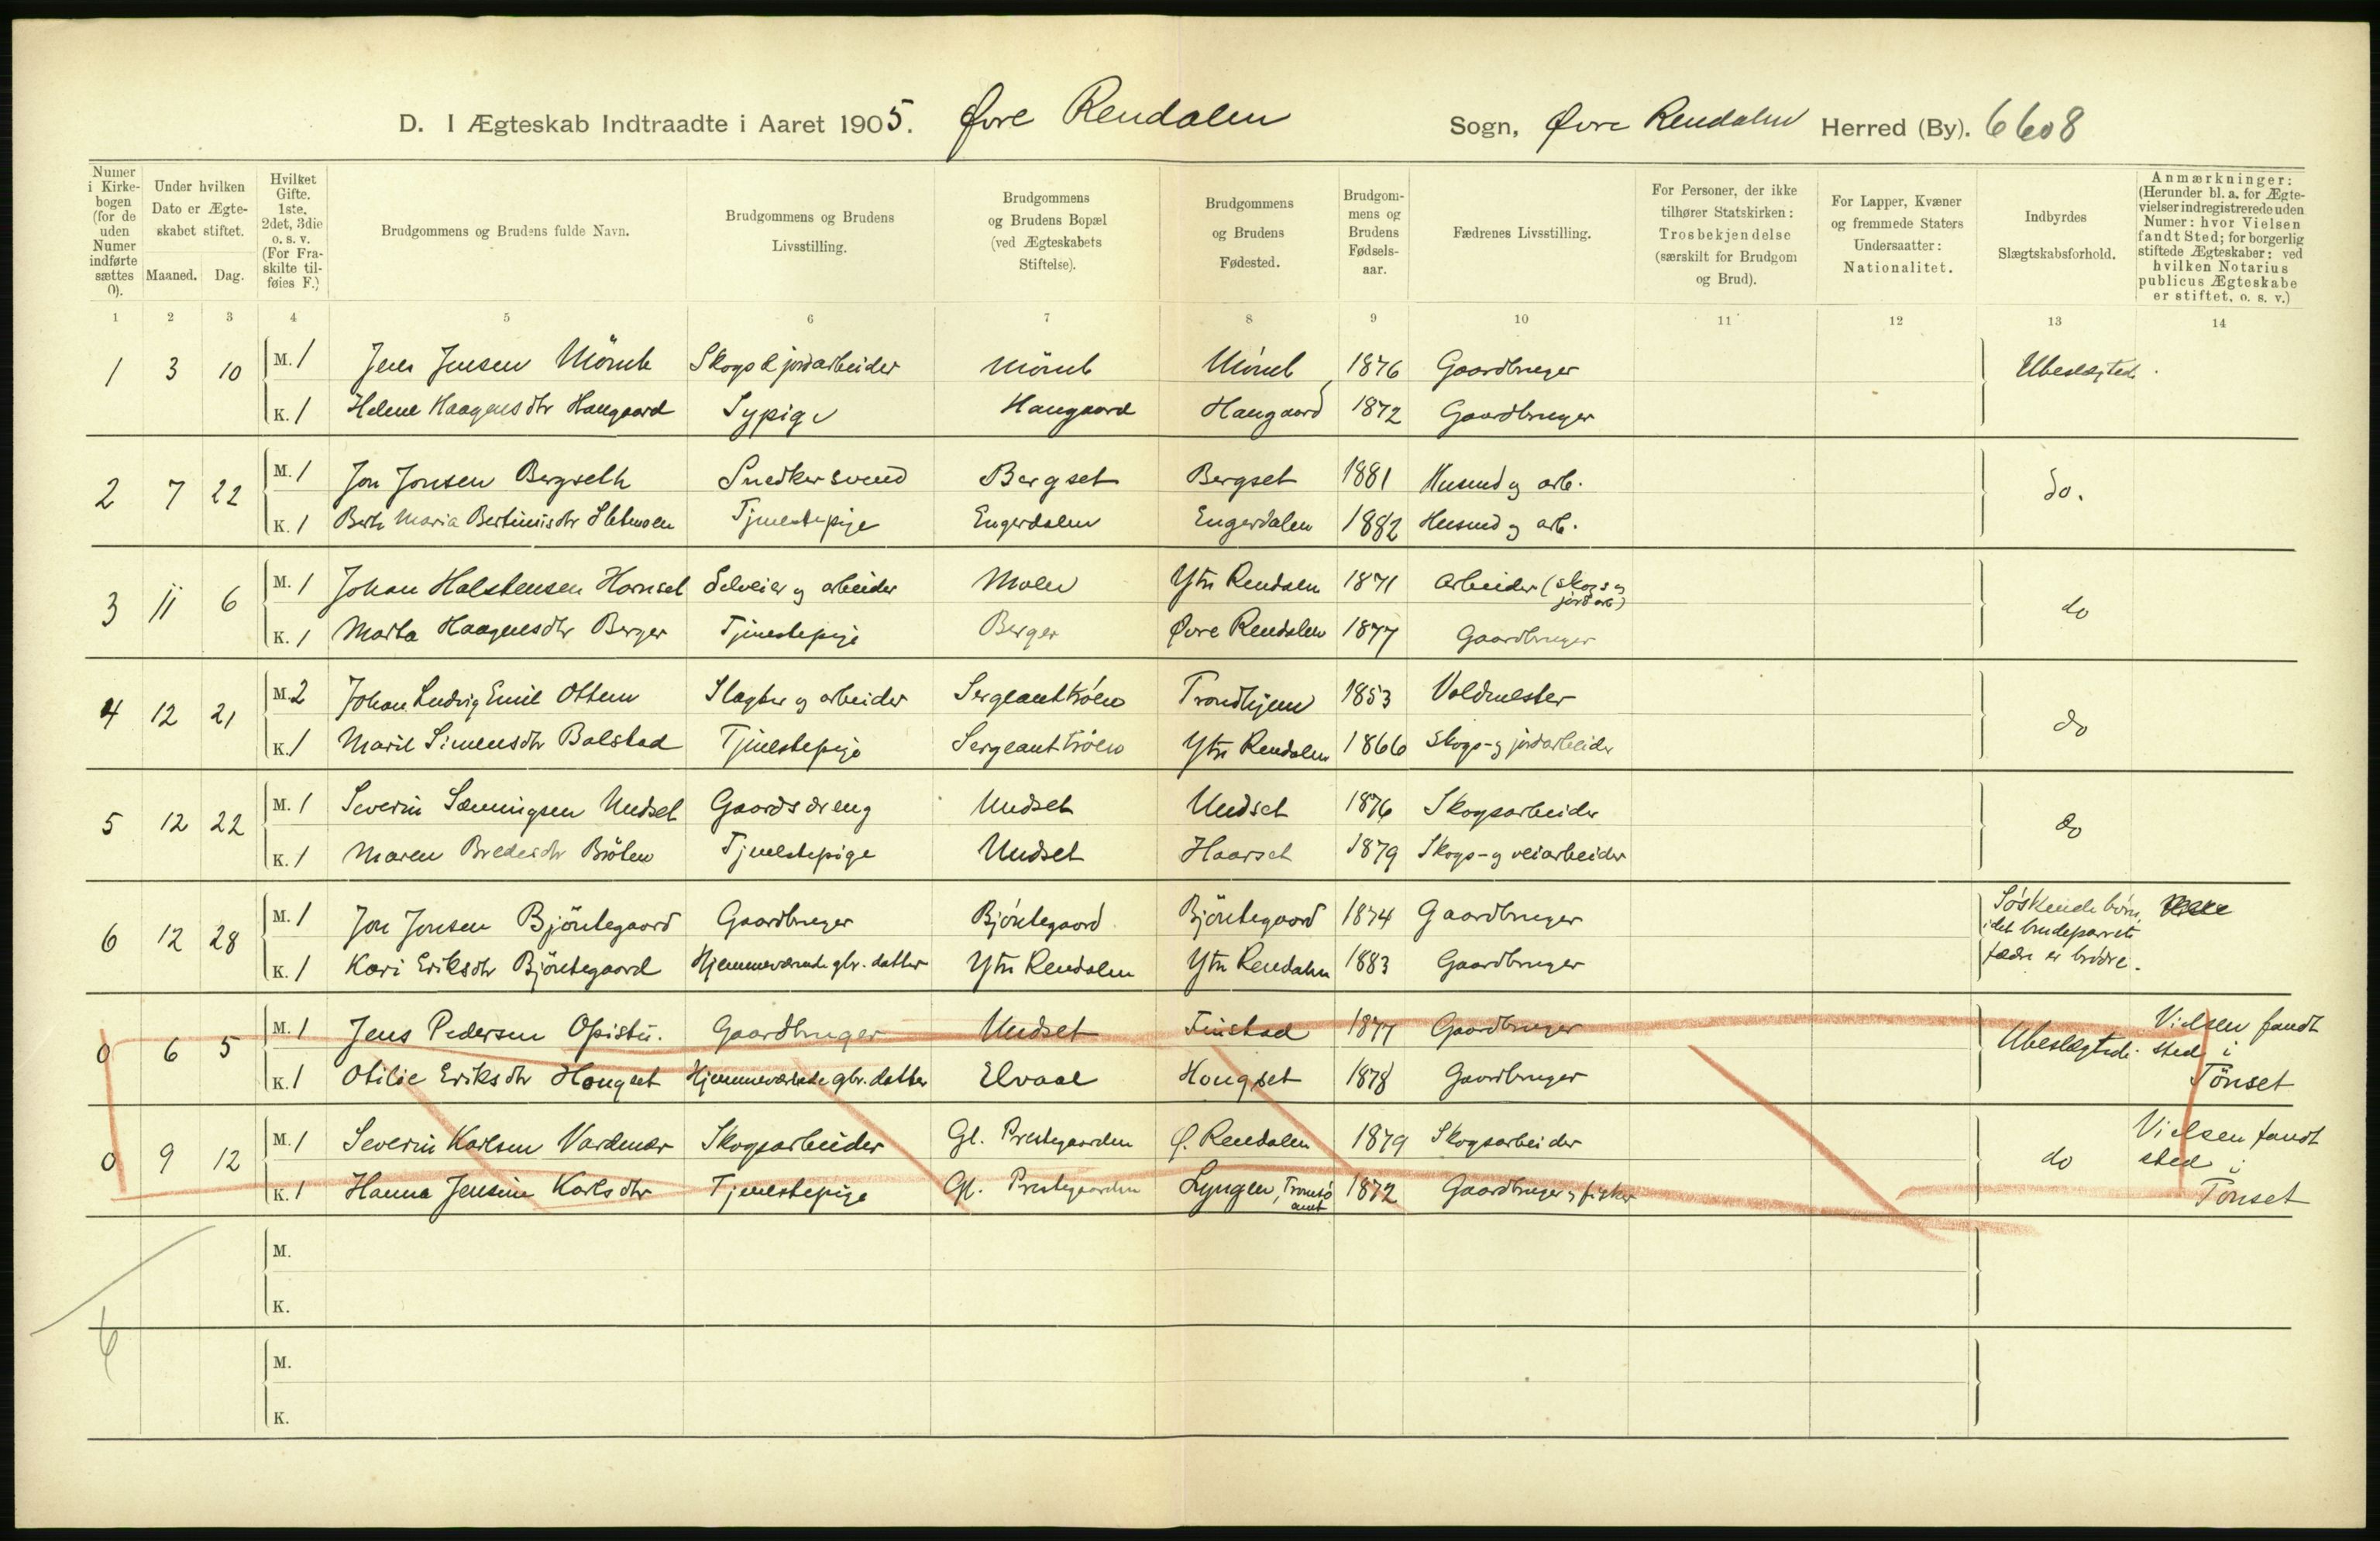 D. I Ægteskab Indtraadte i Aaret 1905. Øvre Rendalen Sogn, Øvre Rendalen Herred (By). 6608
Numer i Kirkebogen (for de uden Numer indførte sættes 0).
Under hvilken Dato er Ægteskabet stiftet.
Maaned. Dag.
Hvilket Gifte. 1ste, 2det, 3die o. s. v. (For Fraskilte tilføies F.)
Brudgommens og Brudens fulde Navn.
Brudgommens og Brudens Livsstilling.
Brudgommens og Brudens Bopæl (ved Ægteskabets Stiftelse).
Brudgommens og Brudens Fødested.
Brudgommens og Brudens Fødselsaar.
Fædrenes Livsstilling.
For Personer, der ikke tilhører Statskirken: Trosbekjendelse (særskilt for Brudgom og Brud).
For Lapper, Kvæner og fremmede Staters Undersaatter: Nationalitet.
Indbyrdes Slægtskabsforhold.
Anmærkninger: (Herunder bl. a. for Ægtevielser indregistrerede uden Numer: hvor Vielsen fandt Sted; for borgerlig stiftede Ægteskaber: ved hvilken Notarius publicus Ægteskabe er stiftet, o. s. v.)
1 2 3 4 5 6 7 8 9 10 11 12 13 14
1 3 10 M. 1 Jens Jensen Mömb Skogs & jordarbeider Mömb Mömb 1876 Gaardbruger Ubeslægtede.
K. 1 Helene Haagensdtr Haugaard Sypige Haugaard Haugaard 1872 Gaardbruger
2 7 22 M. 1 Jon Jonsen Bergseth Snedkersvend Bergset Bergset 1881 Husmd og arb. do.
K. 1 Berte Maria Bertinusdtr Sletmoen Tjenestepige Engerdalen Engerdalen 1882 Husmd og arb.
3 11 6 M. 1 Johan Halstensen Hornset Selveier og arbeider Moen Ytre Rendalen 1871 Arbeider (skogs og jordarb) do
K. 1 Marta Haagensdtr Berger Tjenestepige Berger Øvre Rendalen 1877 Gaardbruger
4 12 21 M. 2 Johan Ludvig Emil Ottem Slagter og arbeider Sergeanttröen Trondhjem 1853 Voldmester do
K. 1 Marit Simensdtr Balstad Tjenestepige Sergeanttröen Ytre Rendalen 1866 Skogs- og jordarbeider
5 12 22 M. 1 Severin Sæmingsen Undset Gaardsdreng Undset Undset 1876 Skogsarbeider do
K. 1 Maren Bredesdtr Bröten Tjenestepige Undset Haarset 1879 Skogs- og veiarbeider
6 12 28 M. 1 Jon Jonsen Bjöntegaard Gaardbruger Bjöntegaard Bjöntegaard 1874 Gaardbruger Söskendebörn, idet brudeparrets fædre er brödre.
K. 1 Kari Eriksdtr Bjöntegaard Hjemmeværende gbr. datter Ytre Rendalen Ytre Rendalen 1883 Gaardbruger
0 6 5 M. 1 Jens Pedersen Opistu. Gaardbruger Undset Finstad 1877 Gaardbruger Ubeslægtede. Vielsen fandt sted i Tönset
K. 1 Otilie Eriksdtr Hougset Hjemmeværende gbr. datter Elvaal Hougset 1878 Gaardbruger
0 9 12 M. 1 Severin Karlsen Vardmor Skogsarbeider Gl. Prestegaarden Ø. Rendalen 1879 Skogsarbeider do Vielsen fandt sted i Tönset
K. 1 Hanna Jensine Karlsdtr Tjenestepige Gl. Prestegaarden Lyngen, Tromsö amt 1872 Gaardbruger og fisker
M.
K.
6
M.
K.